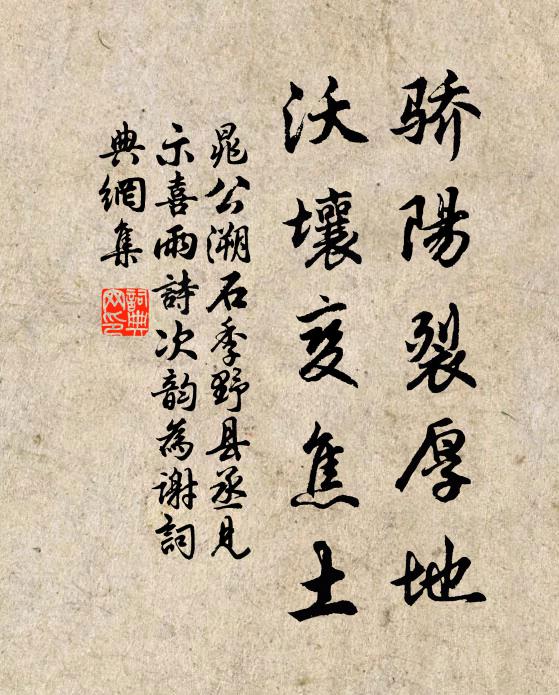 骄陽裂厚地
沃壤变焦土
晁公溯石季野县丞見
示喜雨詩次韵為谢詞
典網集
詞典
网印